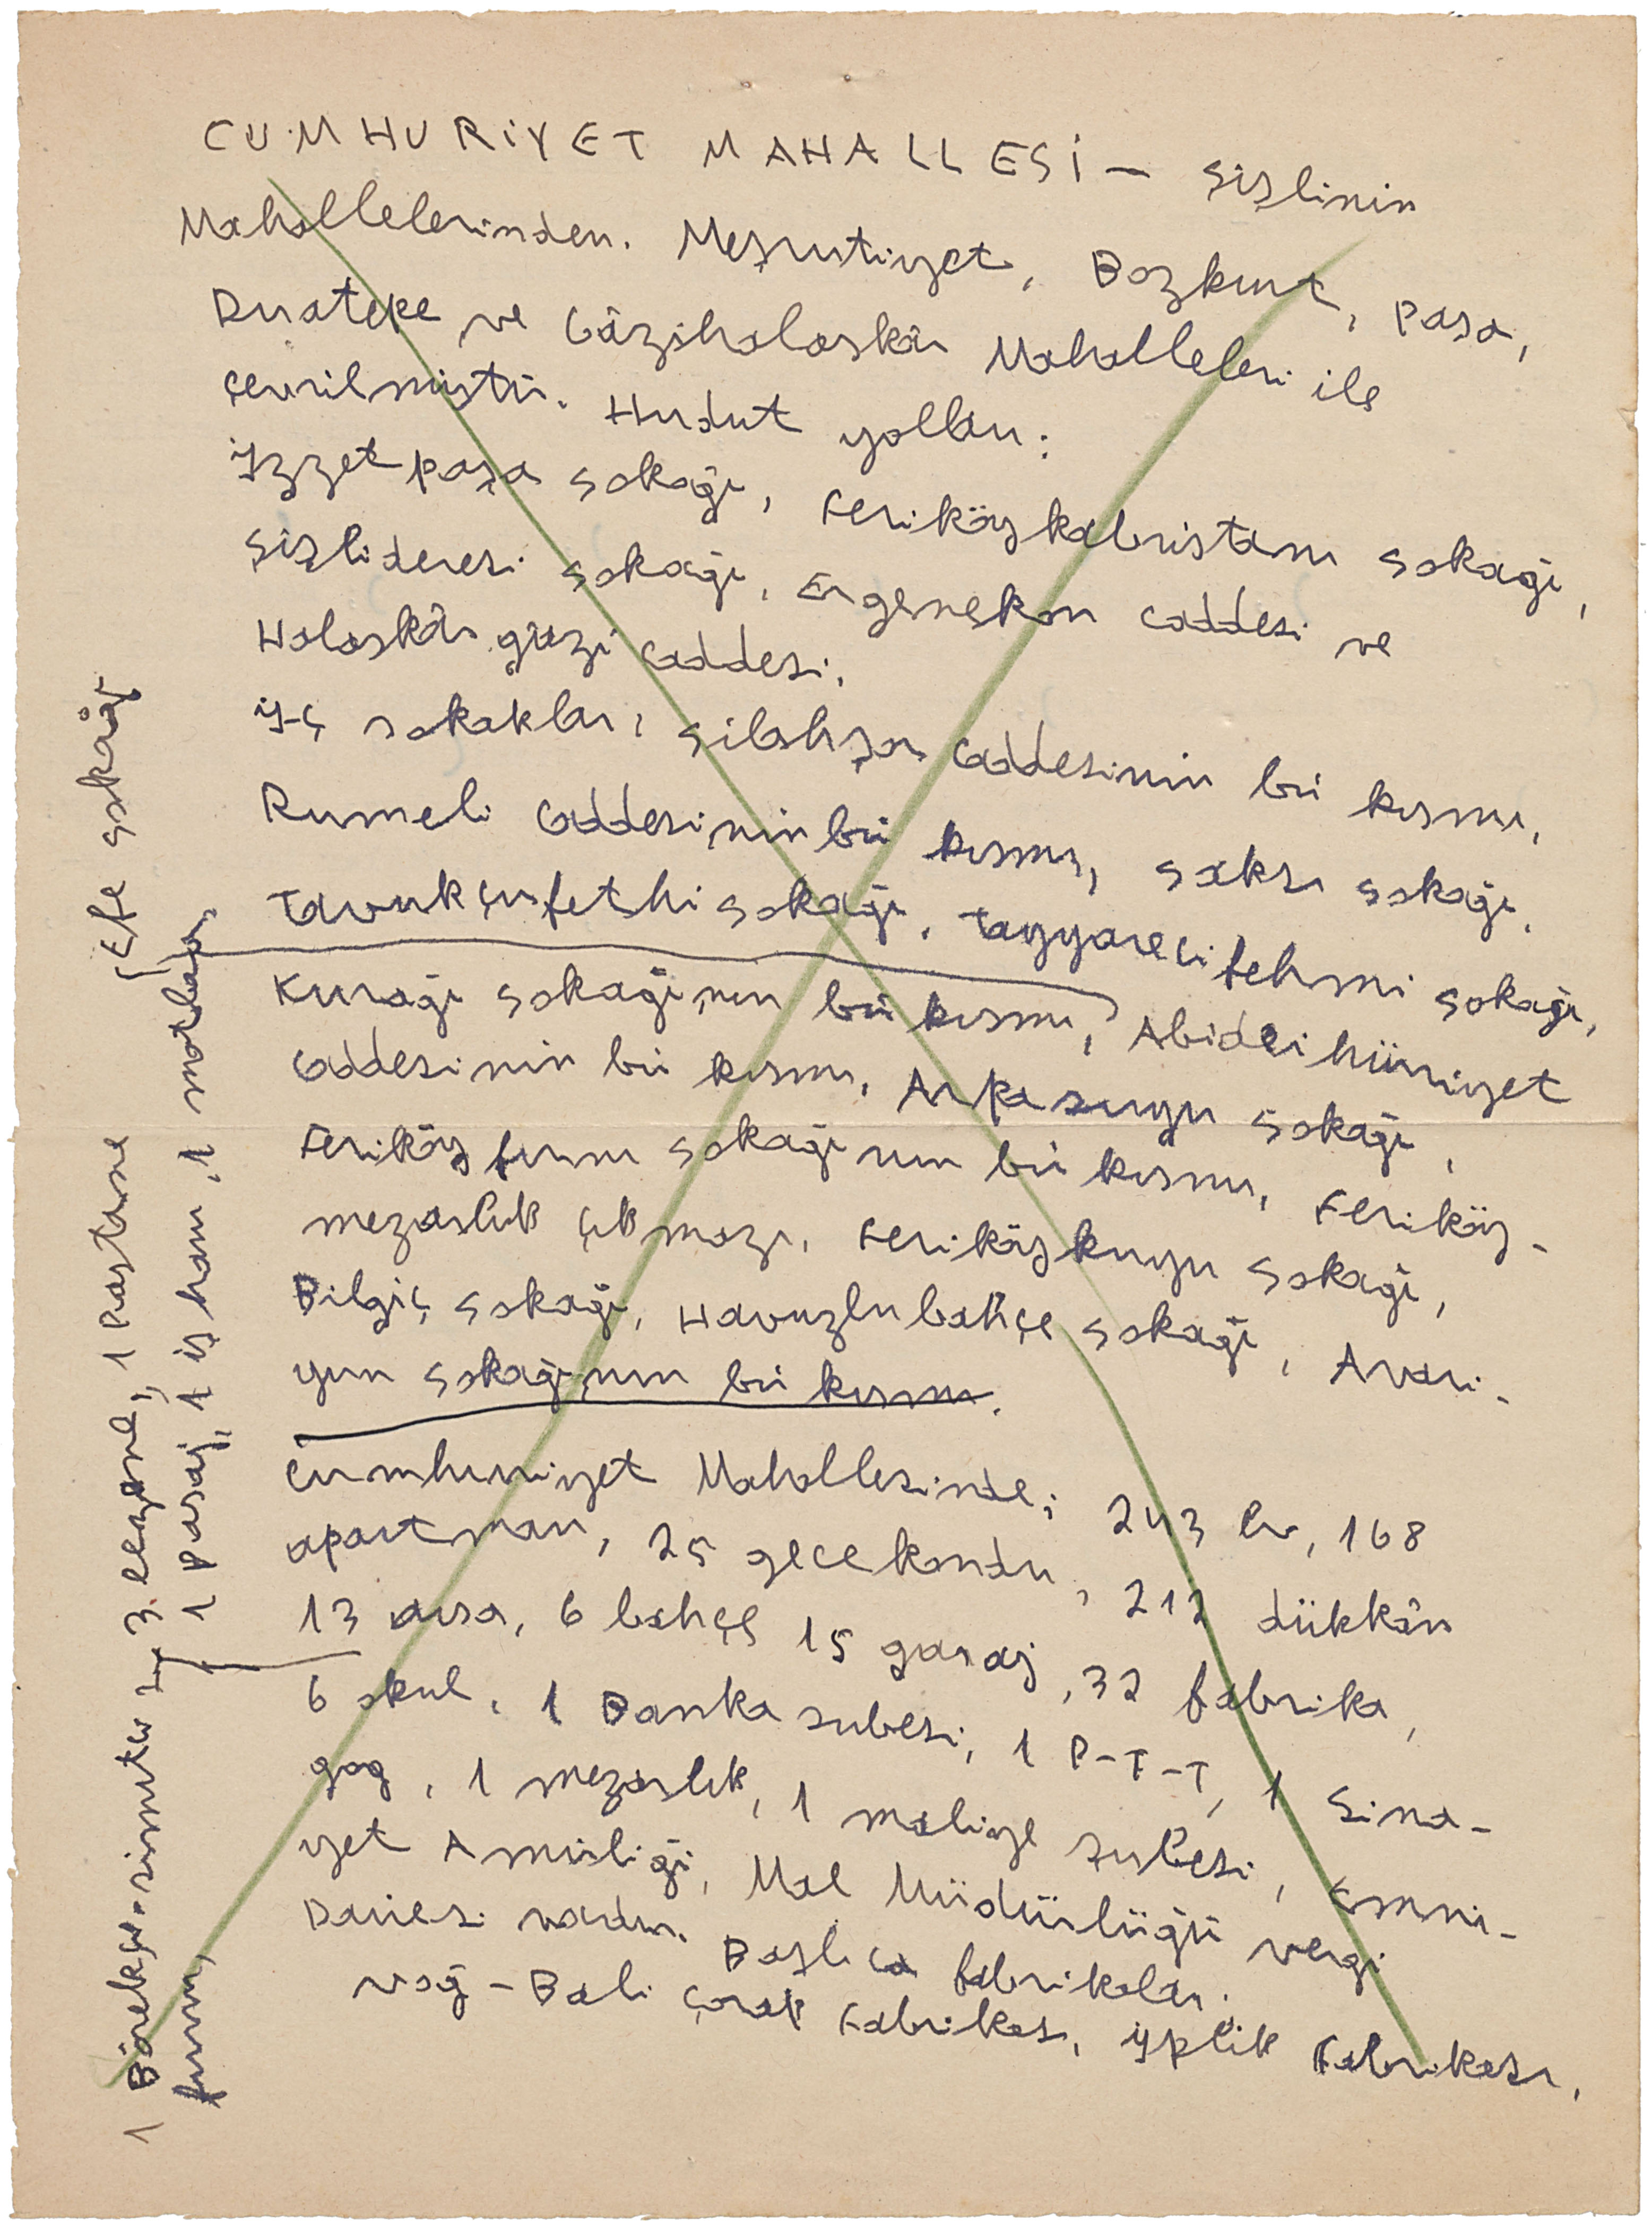 CUMHURİYET MAHALLESİ — Şişlinin
Mahallelerinden. Meşrutiyet, Bozkurt, Paşa,
Duatepe ve Gâzihaloskâr Mahalleleri ile
çevrilmiştir. Hudut yolları:
İzzetpaşa sokağı, Feriköykabristanı sokağı,
Şişlideresi sokağı, Ergenekon caddesi ve
Halaskârgâzi caddesi.
İç sokakları, Silahşor Caddesinin bir kısmı,
Rumeli Caddesinin bir kısmı, Saksı sokağı,
Tavukçufethi sokağı, Tayyareci fehmi sokağı,
Kurağı sokağının bir kısmı, Abideihürriyet
Caddesinin bir kısmı, Arpasuyu sokağı,
Feriköy fırını sokağının bir kısmı, Feriköy-
mezarlık çıkmazı, Feriköykuyu sokağı,
Bilgiç sokağı, Havuzlubahçe sokağı, Avari-
yun sokağının bir kısmı.
Cumhuriyet Mahallesinde; 243 Ev, 168
apartman, 25 gecekondu, 212 dükkân
13 arsa, 6 bahçe 15 garaj, 32 fabrika,
6 okul, 1 Banka şubesi, 1 P-T-T, 1 Sina-
gog, 1 mezarlık, 1 maliye şubesi, Emni-
yet Amirliği, Mal Müdürlüğü vergi
Dairesi vardır. Başlıca fabrikaları:
Vog-Bali Çorap Fabrikası, İplik Fabrikası,
Efe sokağı
1 Börekçi-simitçi, 3 eczane, 1 Pastane
fırını, 1 pasaj, 1 iş hanı, 1 matbaa,